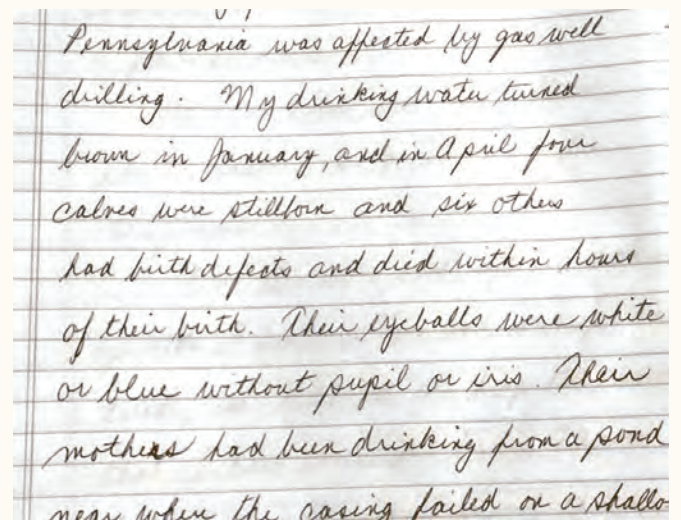 Pennsylvania was affected by gas well
drilling. My drinking water turned
brown in January, and in April four
calves were stillborn and six others
had birth defects and died within hours
of their birth. Their eyeballs were white
or blue without pupil or iris. Their
mothers had been drinking from a pond
near where the casing failed on a shallo